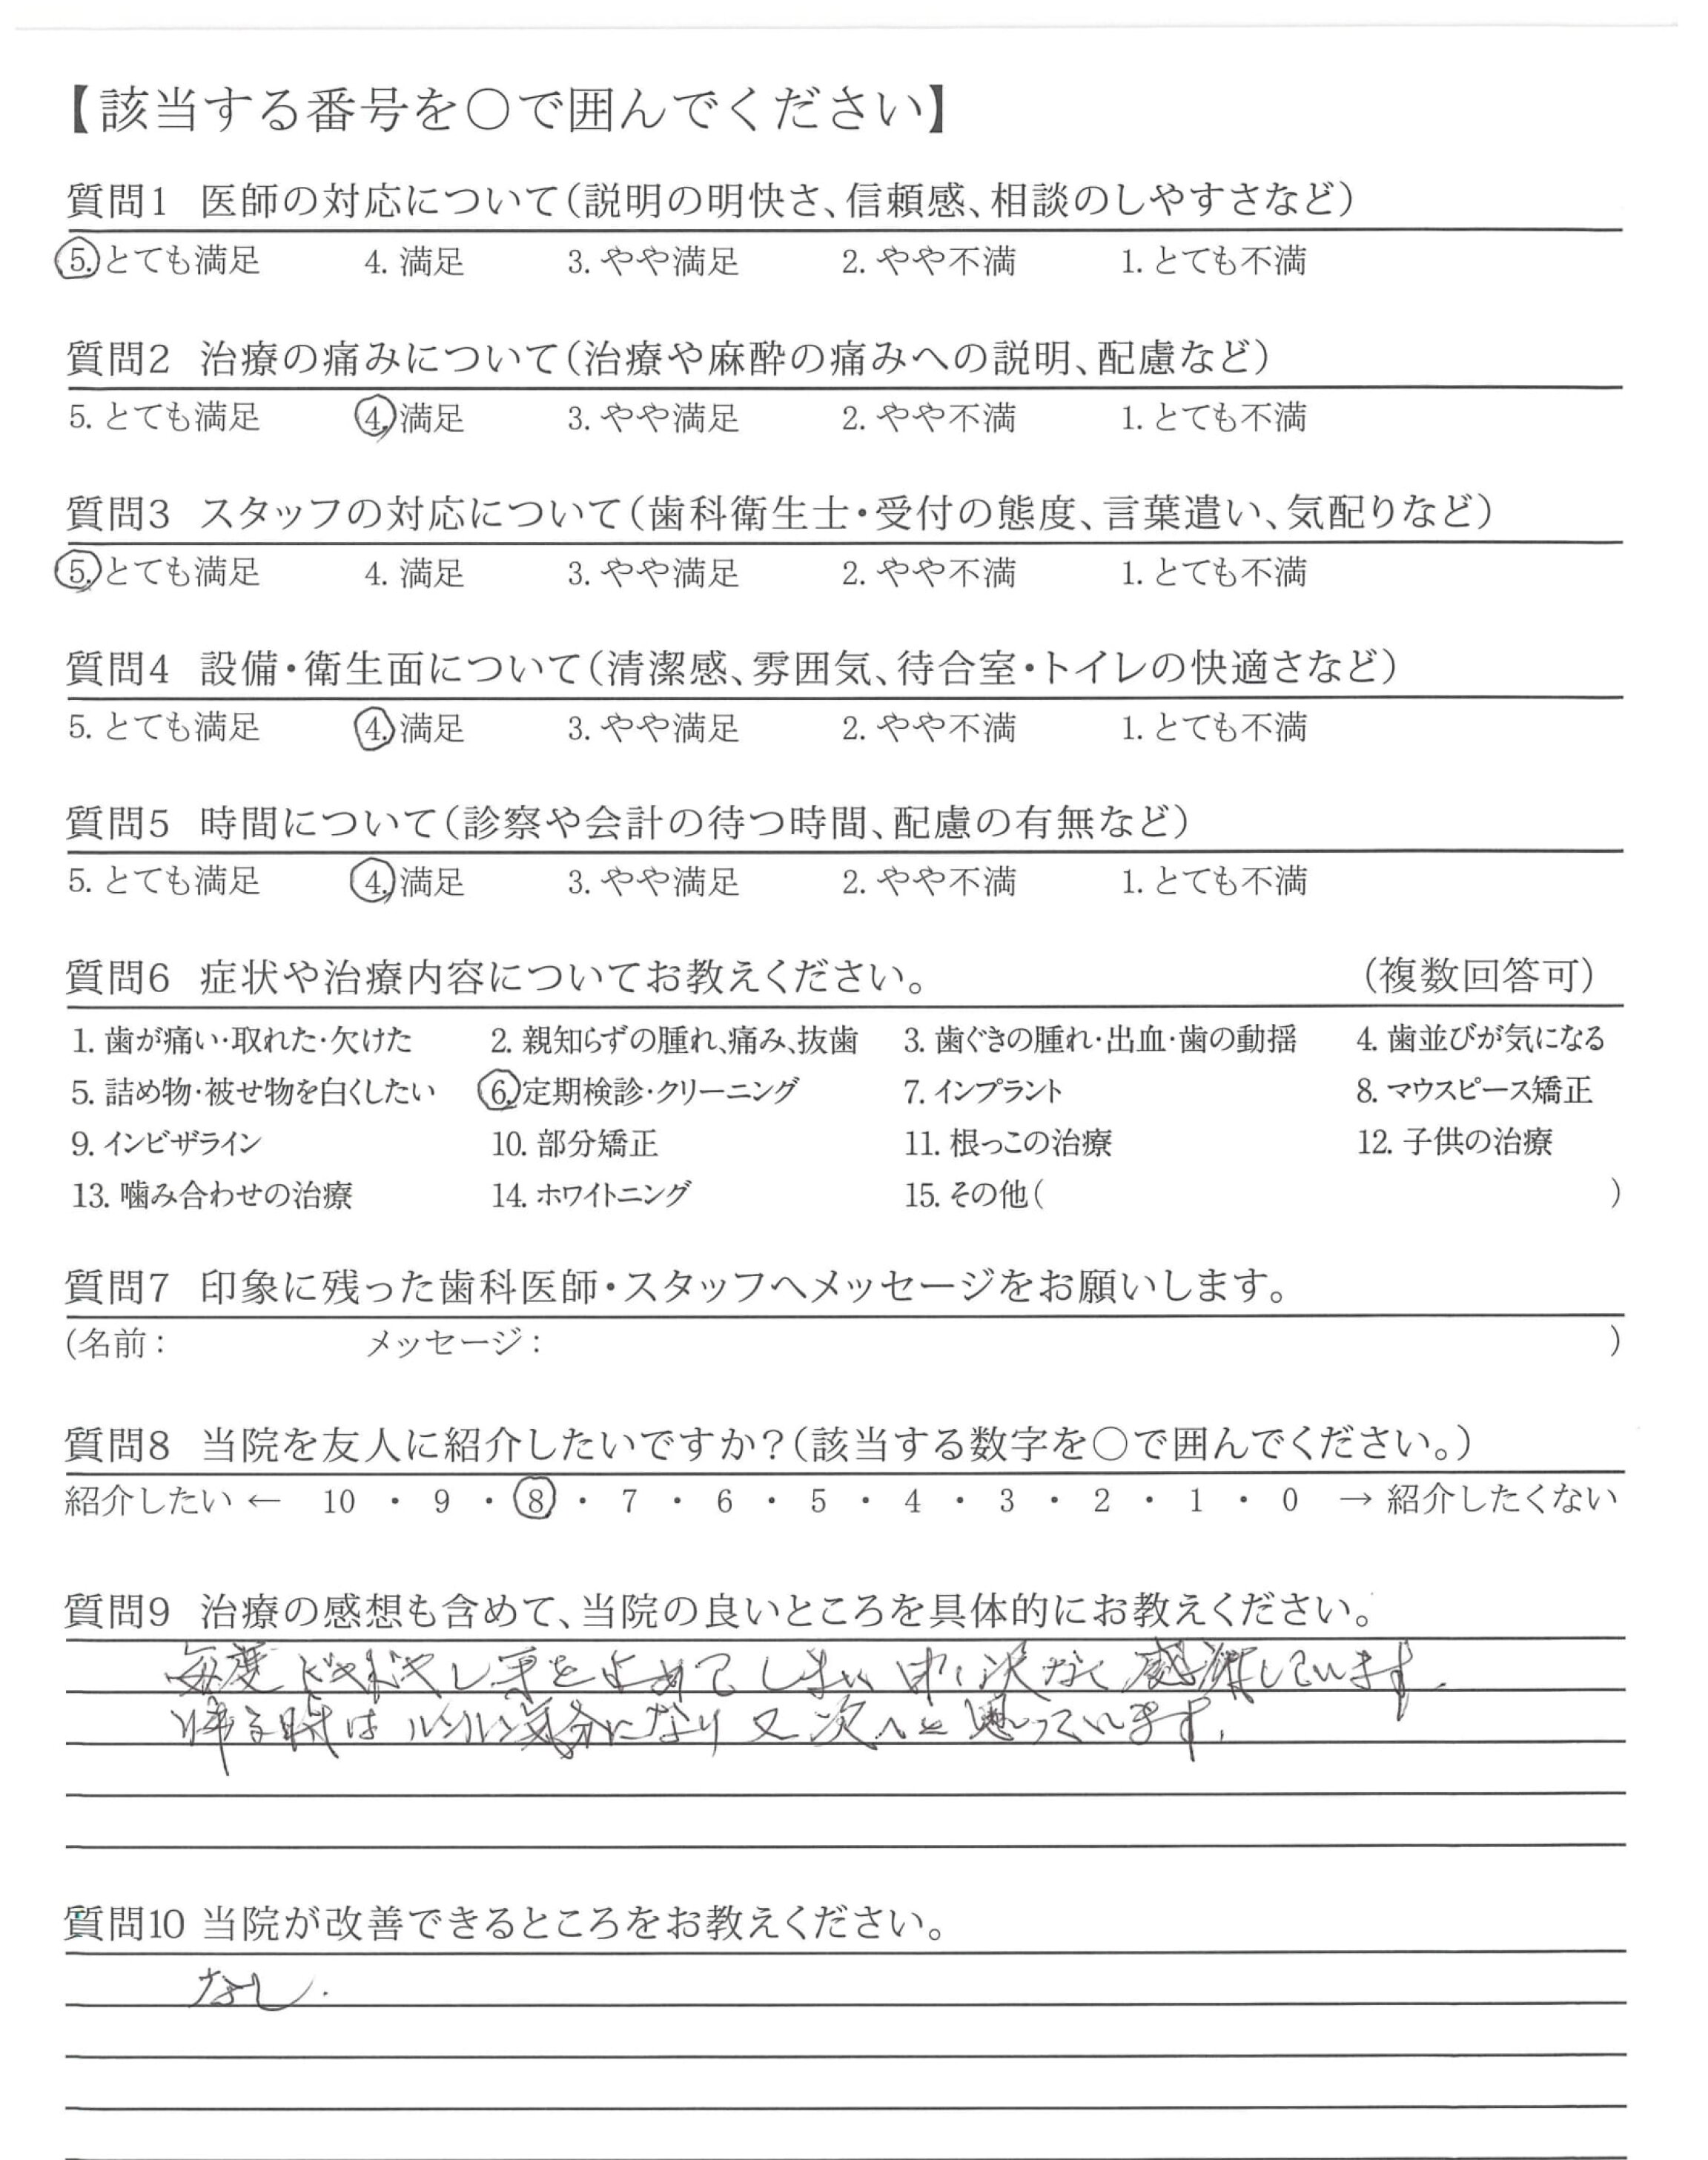 【該当する番号を○で囲んでください】
質問1 医師の対応について(説明の明快さ、信頼感、相談のしやすさなど)
5. とても満足 4. 満足 3. やや満足 2. やや不満 1. とても不満
質問2 治療の痛みについて(治療や麻酔の痛みへの説明、配慮など)
5. とても満足 4. 満足 3. やや満足 2. やや不満 1. とても不満
質問3 スタッフの対応について(歯科衛生士・受付の態度、言葉遣い、気配りなど)
5. とても満足 4. 満足 3. やや満足 2. やや不満 1. とても不満
質問4 設備・衛生面について(清潔感、雰囲気、待合室・トイレの快適さなど)
5. とても満足 4. 満足 3. やや満足 2. やや不満 1. とても不満
質問5 時間について(診察や会計の待つ時間、配慮の有無など)
5. とても満足 4. 満足 3. やや満足 2. やや不満 1. とても不満
質問6 症状や治療内容についてお教えください。 (複数回答可)
1. 歯が痛い・取れた・欠けた 2. 親知らずの腫れ、痛み、抜歯 3. 歯ぐきの腫れ・出血・歯の動揺 4. 歯並びが気になる
5. 詰め物・被せ物を白くしたい 6. 定期検診・クリーニング 7. インプラント 8. マウスピース矯正
9. インビザライン 10. 部分矯正 11. 根っこの治療 12. 子供の治療
13. 噛み合わせの治療 14. ホワイトニング 15. その他( )
質問7 印象に残った歯科医師・スタッフへメッセージをお願いします。
(名前: メッセージ: )
質問8 当院を友人に紹介したいですか?(該当する数字を○で囲んでください。)
紹介したい ← 10 ・ 9 ・ 8 ・ 7 ・ 6 ・ 5 ・ 4 ・ 3 ・ 2 ・ 1 ・ 0 → 紹介したくない
質問9 治療の感想も含めて、当院の良いところを具体的にお教えください。
毎度 ドキドキし手を止めてしまい申し訳なく感謝しています.
帰る時はルンルン気分になり又次へと思っています.
質問10 当院が改善できるところをお教えください。
なし.